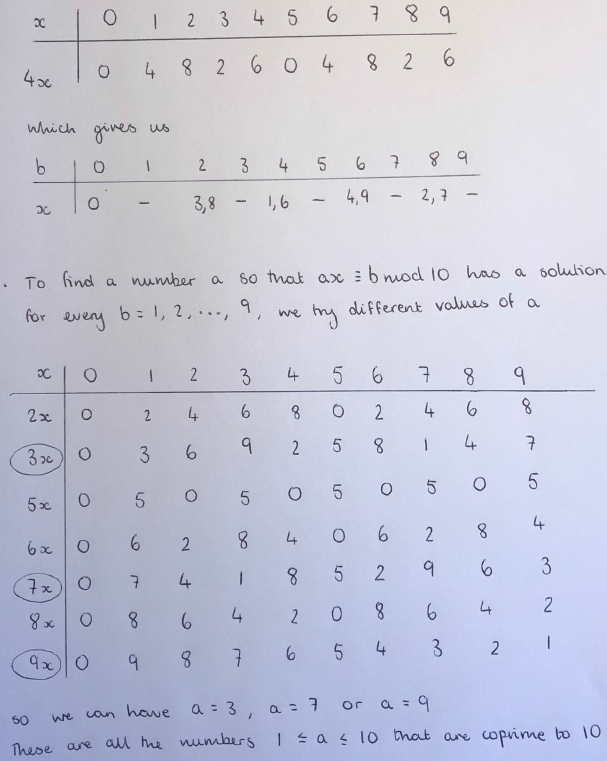 x 0 1 2 3 4 5 6 7 8 9
4x 0 4 8 2 6 0 4 8 2 6
which gives us
b 0 1 2 3 4 5 6 7 8 9
x 0 - 3,8 - 1,6 - 4,9 - 2,7 -
. To find a number a so that ax ≡ b mod 10 has a solution
for every b = 1, 2, ..., 9, we try different values of a
x 0 1 2 3 4 5 6 7 8 9
2x 0 2 4 6 8 0 2 4 6 8
3x 0 3 6 9 2 5 8 1 4 7
5x 0 5 0 5 0 5 0 5 0 5
6x 0 6 2 8 4 0 6 2 8 4
7x 0 7 4 1 8 5 2 9 6 3
8x 0 8 6 4 2 0 8 6 4 2
9x 0 9 8 7 6 5 4 3 2 1
so we can have a = 3, a = 7 or a = 9
These are all the numbers 1 ≤ a ≤ 10 that are coprime to 10